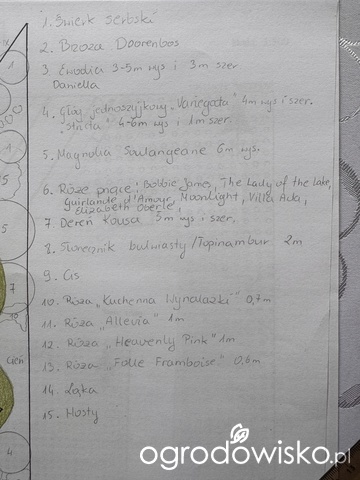 1. Świerk serbski
2. Brzoza Doorenbos
3. Ewodia 3-5m wys i 3m szer.
Daniella
4. Głóg jednoszyjkowy "Variegata" 4m wys i szer.
"Stricta" 4-6m wys i 1m szer.
5. Magnolia Soulangeane 6m wys.
6. Róże pnące: Bobbie James, The Lady of the Lake,
Guirlande d'Amour, Moonlight, Villa Ada,
Elizabeth Oberle,
7. Dereń Kousa 5m wys i szer.
8. Słonecznik bulwiasty/Topinambur 2m
9. Cis
10. Róża "Kuchenna Wynalazki" 0,7m
11. Róża "Allevia" 1m
12. Róża "Heavenly Pink" 1m
13. Róża "Folle Framboise" 0,6m
14. Łąka
15. Hosty
1
1
5
5
7
10
Cień
4
ogrodowisko.pl